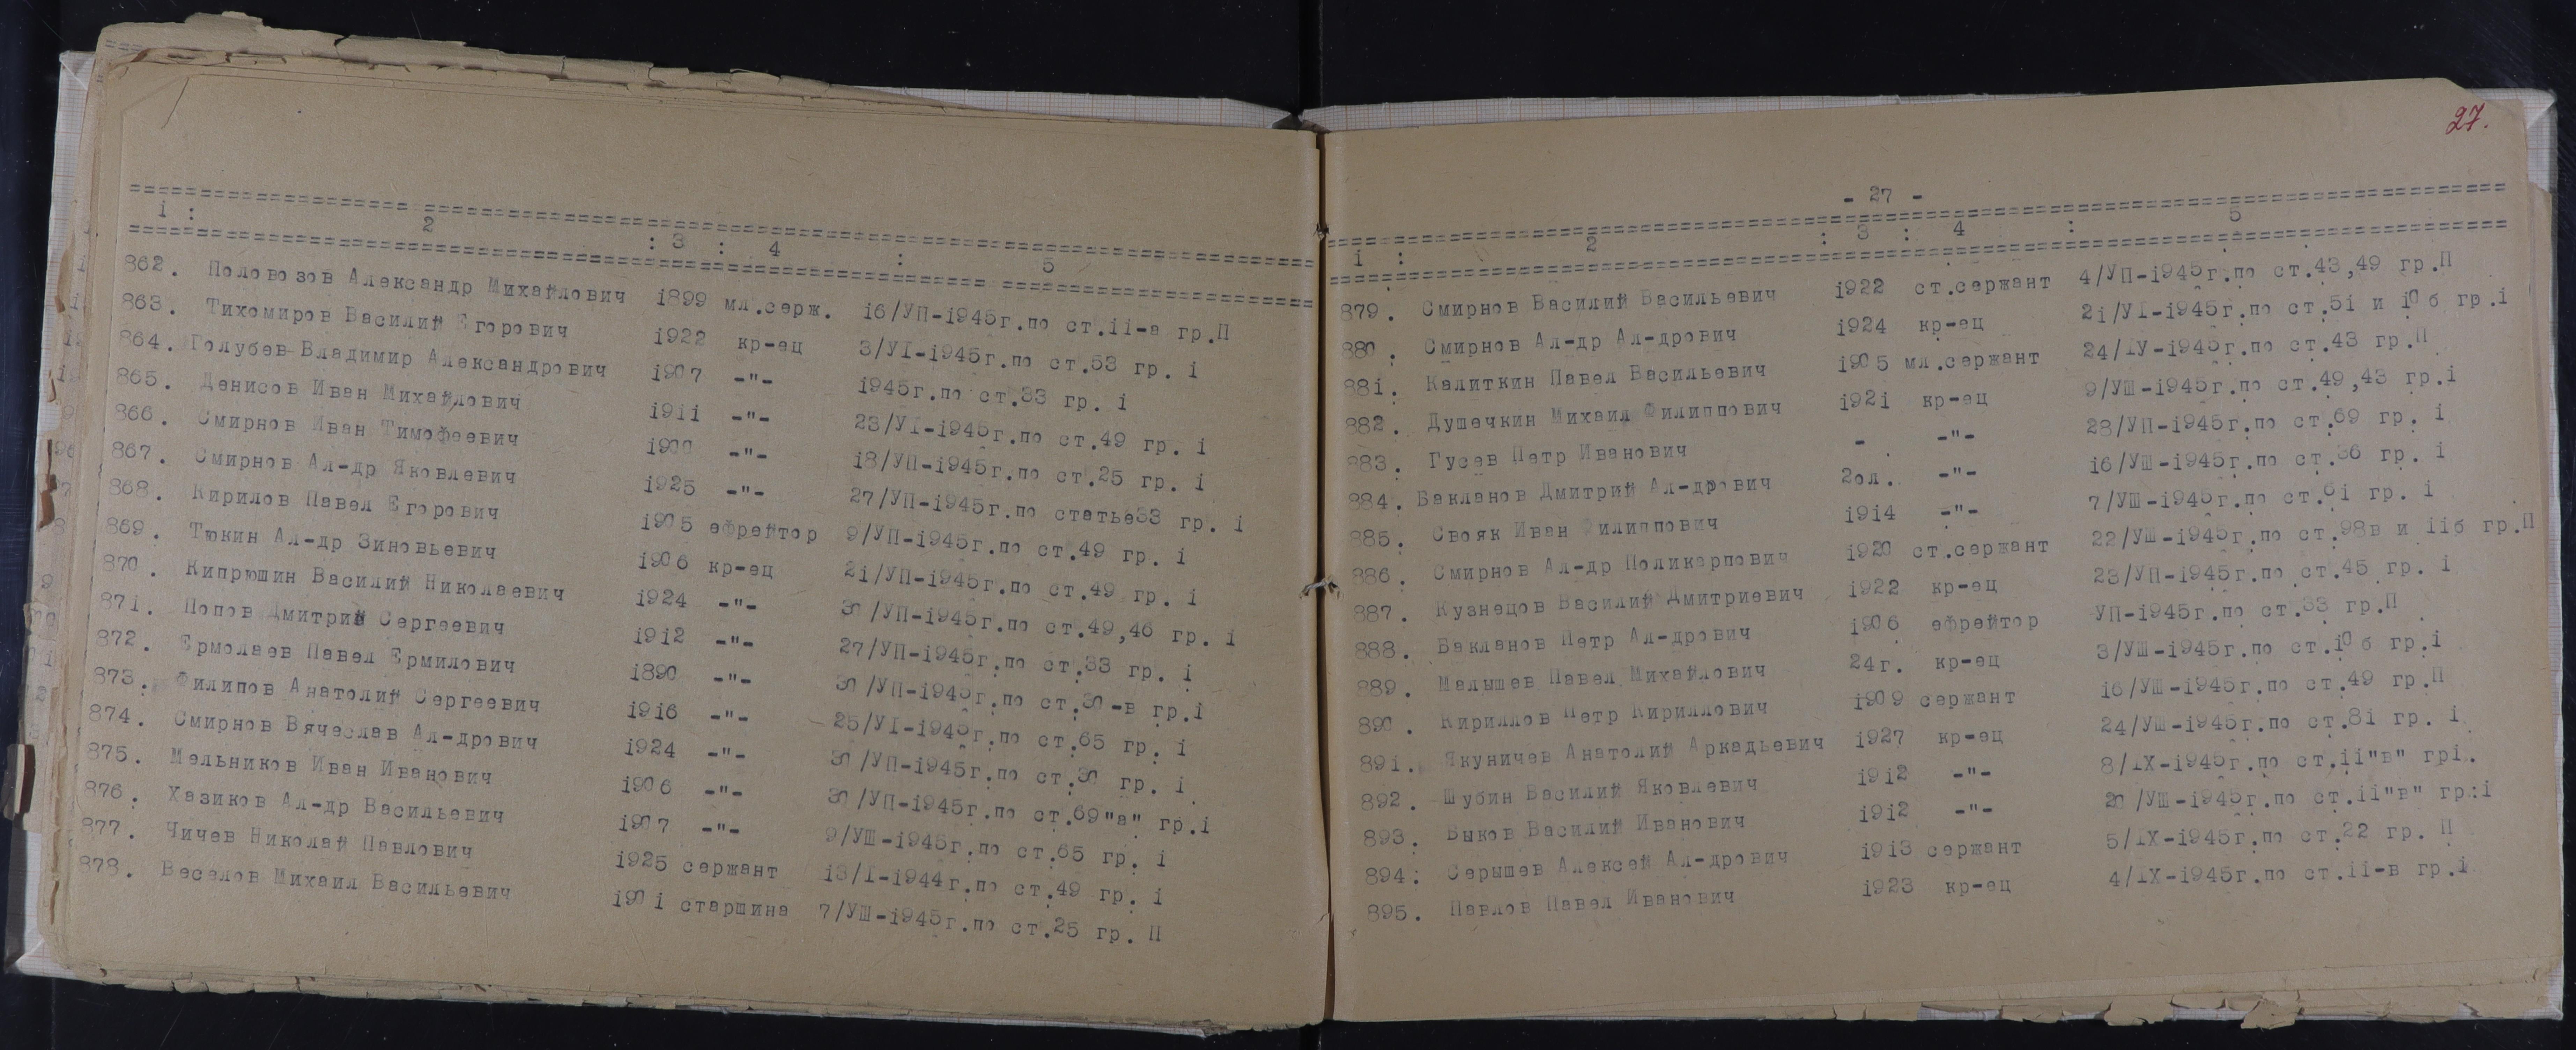 i : 2 : 3 : 4 : 5
862. Половозов Александр Михайлович i899 мл.серж. i6/УП-i945г.по ст.ii-а гр.П
863. Тихомиров Василий Егорович i922 кр-ец 3/УI-i945г.по ст.53 гр. i
864. Голубев Владимир Александрович i907 -"- i945г.по ст.33 гр. i
865. Денисов Иван Михайлович i9ii -"- 23/УI-i945г.по ст.49 гр. i
866. Смирнов Иван Тимофеевич i900 -"- i8/УП-i945г.по ст.25 гр. i
867. Смирнов Ал-др Яковлевич i925 -"- 27/УП-i945г.по статье33 гр. i
868. Кирилов Павел Егорович i905 ефрейтор 9/УП-i945г.по ст.49 гр. i
869. Тюкин Ал-др Зиновьевич i906 кр-ец 2i/УП-i945г.по ст.49 гр. i
870. Кипрюшин Василий Николаевич i924 -"- 30/УП-i945г.по ст.49,46 гр. i
87i. Попов Дмитрий Сергеевич i9i2 -"- 27/УП-i945г.по ст.33 гр. i
872. Ермолаев Павел Ермилович i890 -"- 30/УП-i945г.по ст.30-в гр.i
873. Филипов Анатолий Сергеевич i9i6 -"- 25/УI-i945г.по ст.65 гр. i
874. Смирнов Вячеслав Ал-дрович i924 -"- 30/УП-i945г.по ст.30 гр. i
875. Мельников Иван Иванович i906 -"- 30/УП-i945г.по ст.69"а" гр.i
876. Хазиков Ал-др Васильевич i907 -"- 9/УШ-i945г.по ст.65 гр. i
877. Чичев Николай Павлович i925 сержант i3/I-i944г.по ст.49 гр. i
878. Веселов Михаил Васильевич i90i старшина 7/УШ-i945г.по ст.25 гр. П
27.
- 27 -
i : 2 : 3 : 4 : 5
879. Смирнов Василий Васильевич i922 ст.сержант 4/УП-i945г.по ст.43,49 гр.П
880. Смирнов Ал-др Ал-дрович i924 кр-ец 2i/УI-i945г.по ст.5i и i0 б гр.i
88i. Калиткин Павел Васильевич i905 мл.сержант 24/IУ-i945г.по ст.43 гр.П
882. Душечкин Михаил Филиппович i92i кр-ец 9/УШ-i945г.по ст.49,43 гр.i
883. Гусев Петр Иванович - -"- 28/УП-i945г.по ст.69 гр. i
884. Бакланов Дмитрий Ал-дрович 2ол. -"- i6/УШ-i945г.по ст.36 гр. i
885. Свояк Иван Филиппович i9i4 -"- 7/УШ-i945г.по ст.6i гр. i
886. Смирнов Ал-др Поликарпович i920 ст.сержант 22/УШ-i945г.по ст.98в и iiб гр.П
887. Кузнецов Василий Дмитриевич i922 кр-ец 23/УП-i945г.по ст.45 гр. i
888. Бакланов Петр Ал-дрович i906 ефрейтор УП-i945г.по ст.33 гр.П
889. Малышев Павел Михайлович 24г. кр-ец 3/УШ-i945г.по ст.i0 б гр.i
890. Кириллов Петр Кириллович i909 сержант i6/УШ-i945г.по ст.49 гр.П
89i. Якуничев Анатолий Аркадьевич i927 кр-ец 24/УШ-i945г.по ст.8i гр. i
892. Шубин Василий Яковлевич i9i2 -"- 8/IX-i945г.по ст.ii"в" грi.
893. Быков Василий Иванович i9i2 -"- 20/УШ-i945г.по ст.ii"в" гр:i
894. Серышев Алексей Ал-дрович i9i3 сержант 5/IX-i945г.по ст.22 гр. П
895. Павлов Павел Иванович i923 кр-ец 4/IX-i945г.по ст.ii-в гр.i